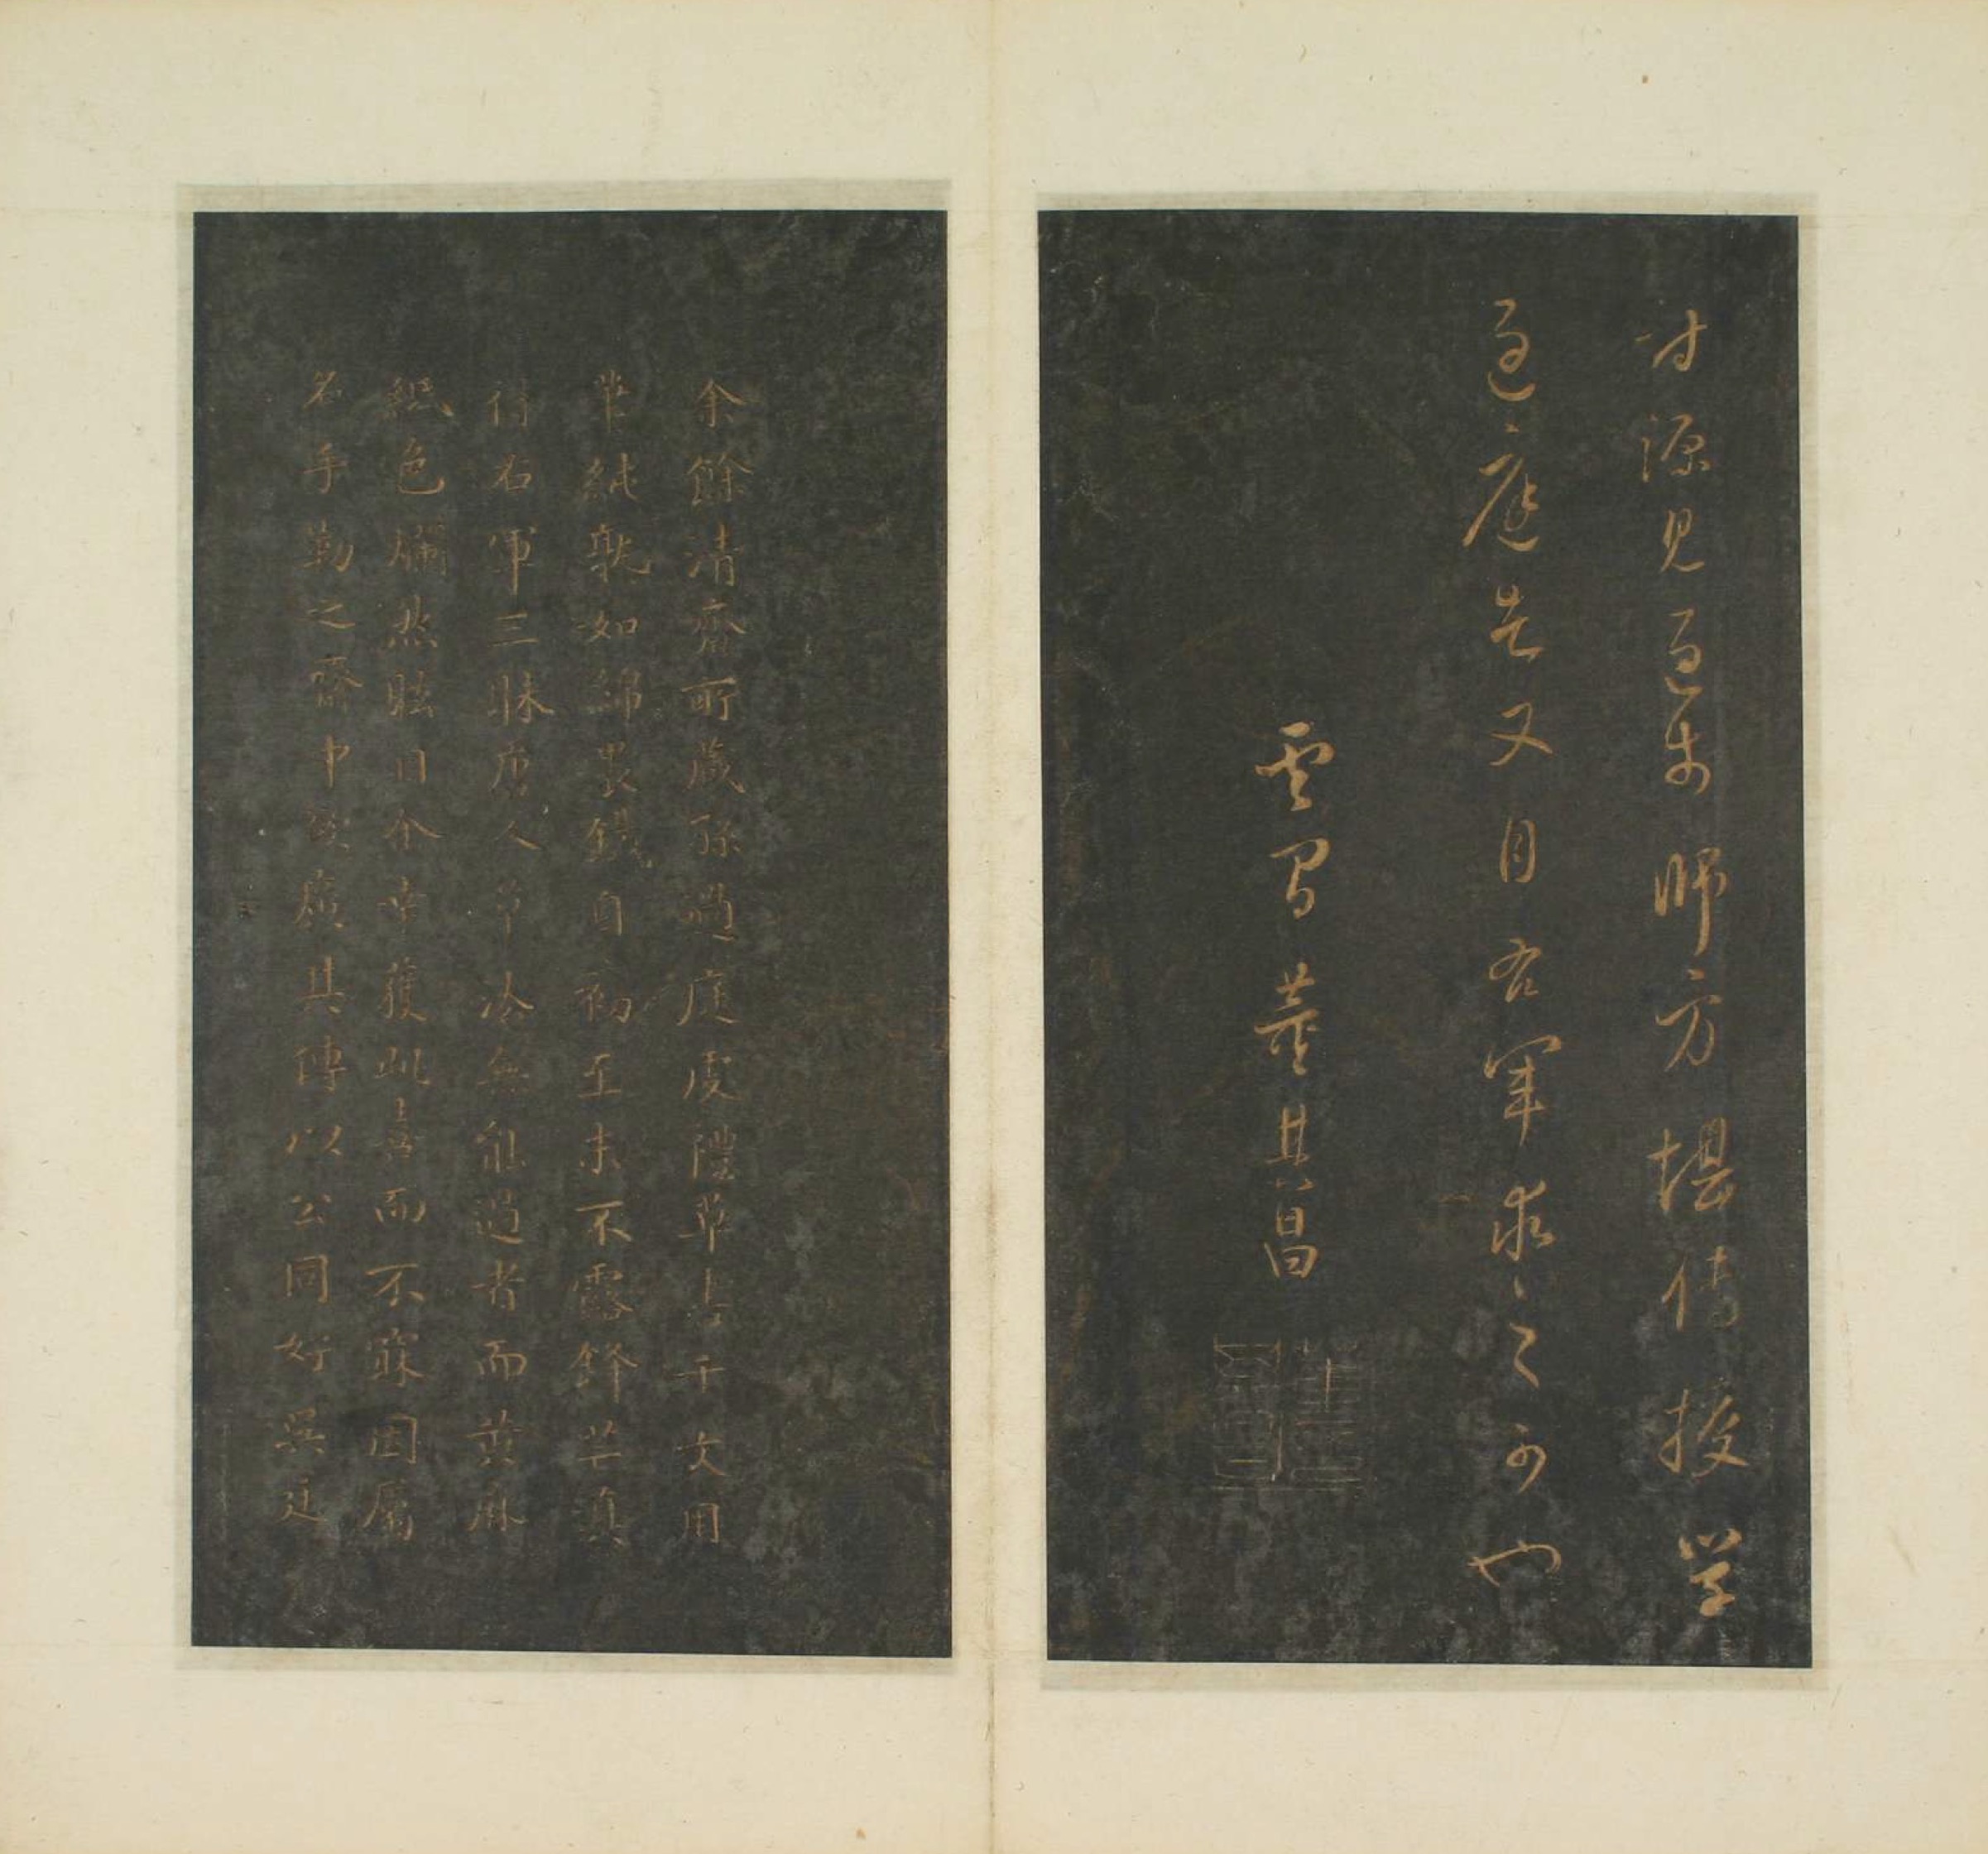 討源見過於師方堪傳授學
過庭者又自右軍求之可也
雲間董其昌
余餘清齋所藏孫過庭虔禮草書千文用
筆純熟如綿裹鐵自初至末不露鋒芒真
得右軍三昧唐人草冷無能過者而黃麻
紙色爛然眩目余幸獲此喜而不寐因屬
名手勒之齋中欲廣其傳以公同好吳廷